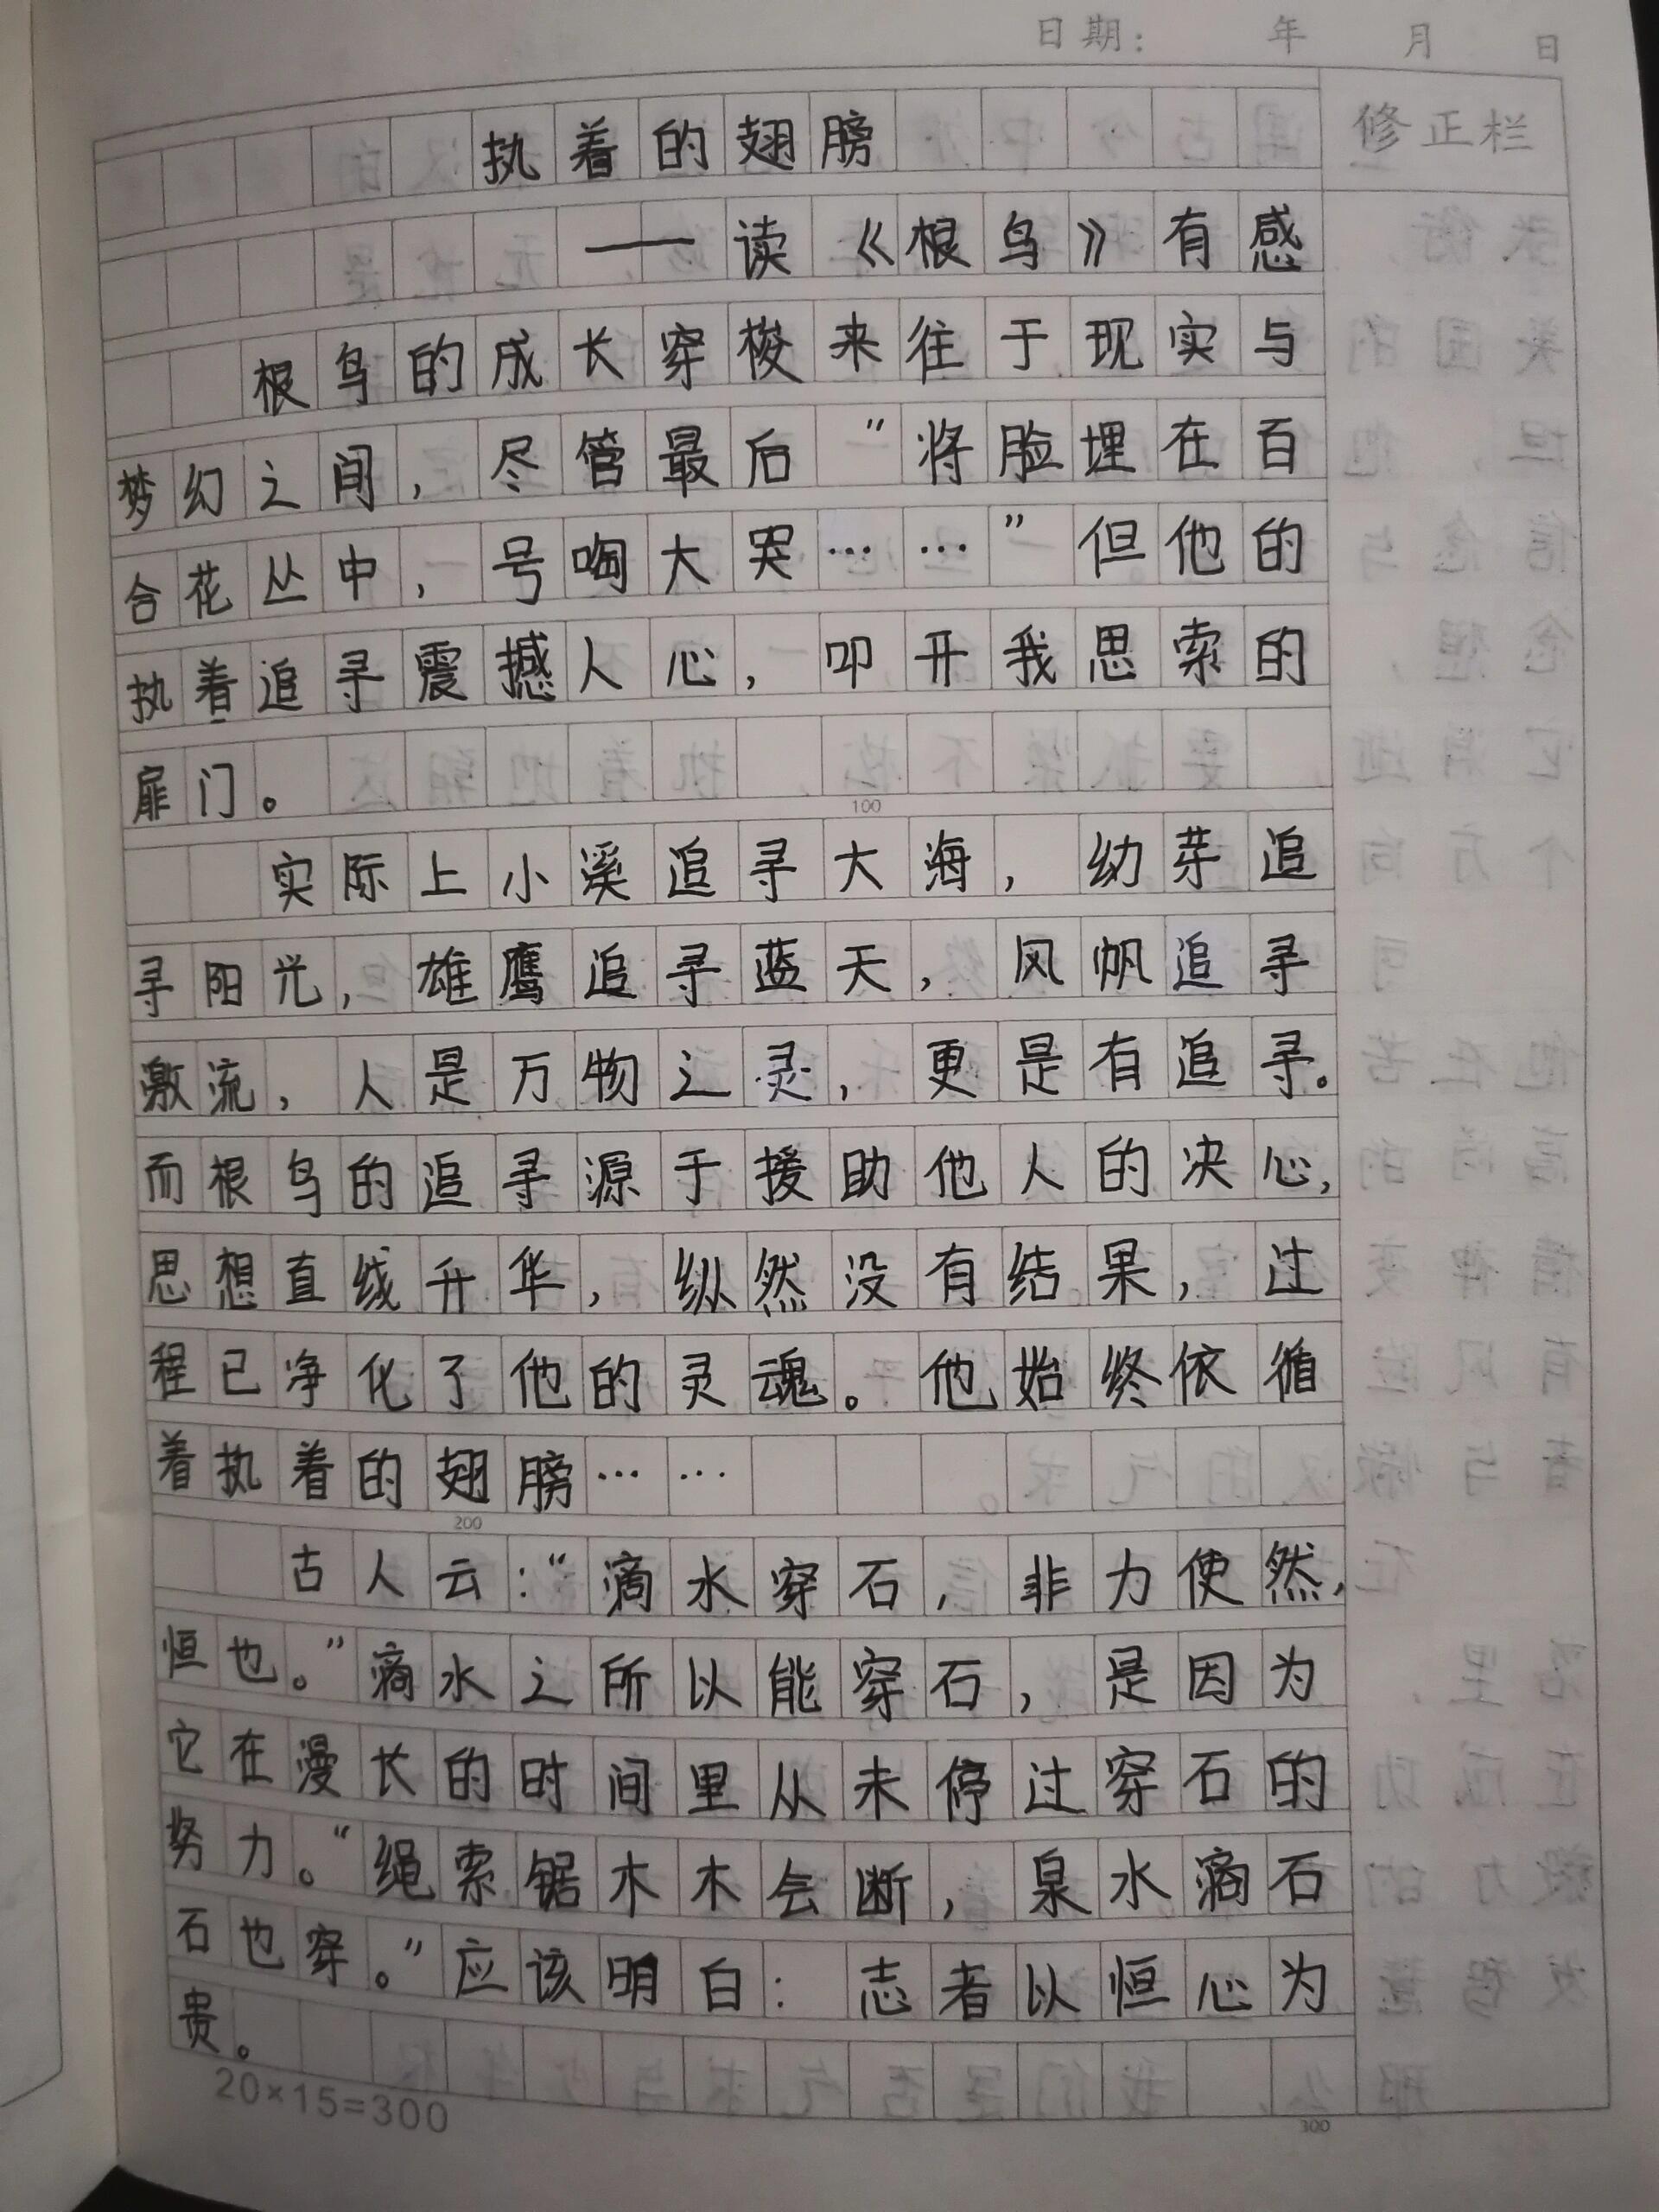 日期： 年 月 日
修正栏
执着的翅膀
——读《根鸟》有感
根鸟的成长穿梭来往于现实与
梦幻之间，尽管最后“将脸埋在百
合花丛中，号啕大哭……”但他的
执着追寻震撼人心，叩开我思索的
扉门。
100
实际上小溪追寻大海，幼芽追
寻阳光，雄鹰追寻蓝天，风帆追寻
激流，人是万物之灵，更是有追寻。
而根鸟的追寻源于援助他人的决心，
思想直线升华，纵然没有结果，过
程已净化了他的灵魂。他始终依循
着执着的翅膀……
200
古人云：“滴水穿石，非力使然，
恒也。”滴水之所以能穿石，是因为
它在漫长的时间里从未停过穿石的
努力。“绳索锯木木会断，泉水滴石
石也穿。”应该明白：志者以恒心为
贵。
20×15=300
300